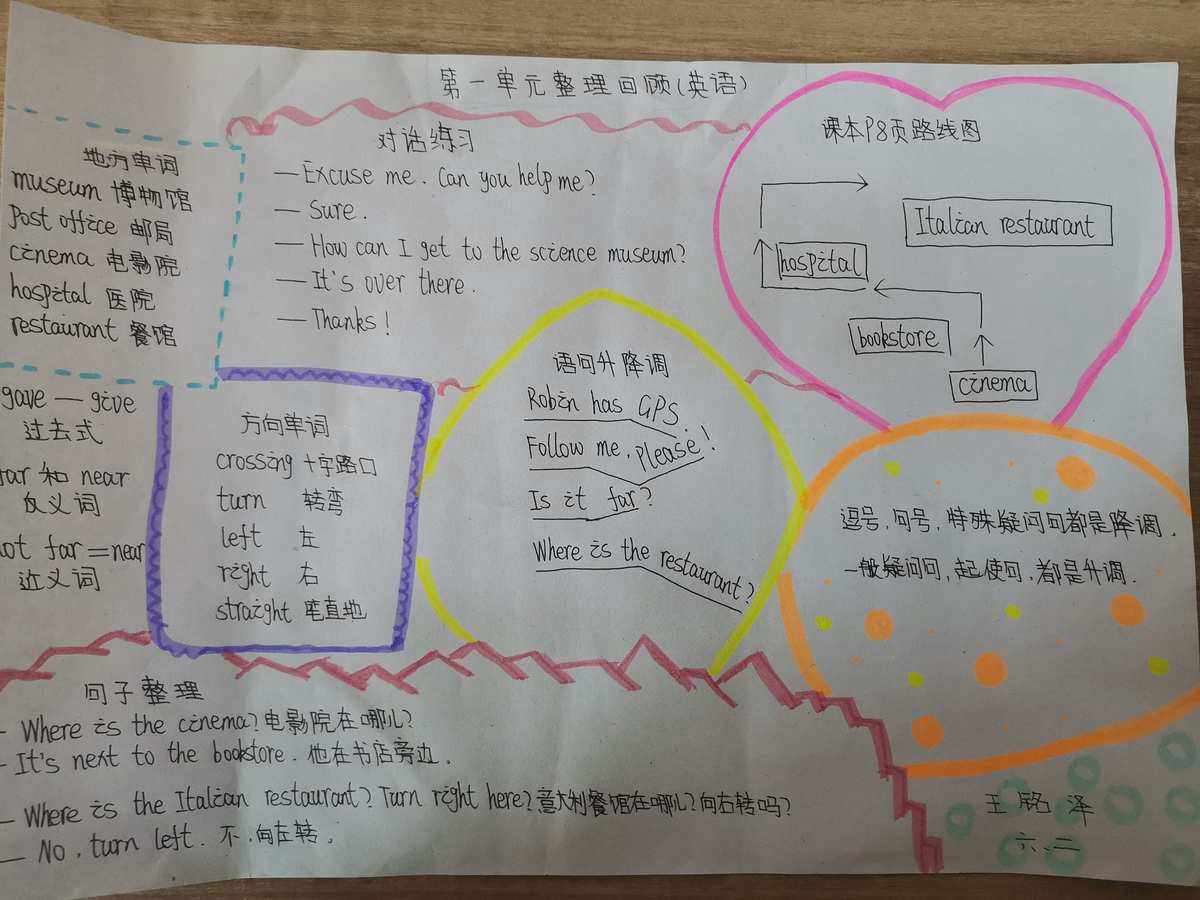 第一单元整理回顾(英语)
地方单词
museum 博物馆
Post office 邮局
cinema 电影院
hospital 医院
restaurant 餐馆
对话练习
— Excuse me. Can you help me?
— Sure.
— How can I get to the science museum?
— It's over there.
— Thanks!
课本P8页路线图
Italian restaurant
hospital
bookstore
cinema
gave — give
过去式
far 和 near
反义词
not far = near
近义词
方向单词
crossing 十字路口
turn 转弯
left 左
right 右
straight 笔直地
语句升降调
Robin has GPS.
Follow me, please!
Is it far?
Where is the restaurant?
逗号,句号,特殊疑问句都是降调.
一般疑问句,起使句,都是升调.
句子整理
- Where is the cinema? 电影院在哪儿?
- It's next to the bookstore. 他在书店旁边.
— Where is the Italian restaurant? Turn right here? 意大利餐馆在哪儿?向右转吗?
— No, turn left. 不,向左转.
王铭泽
六、二